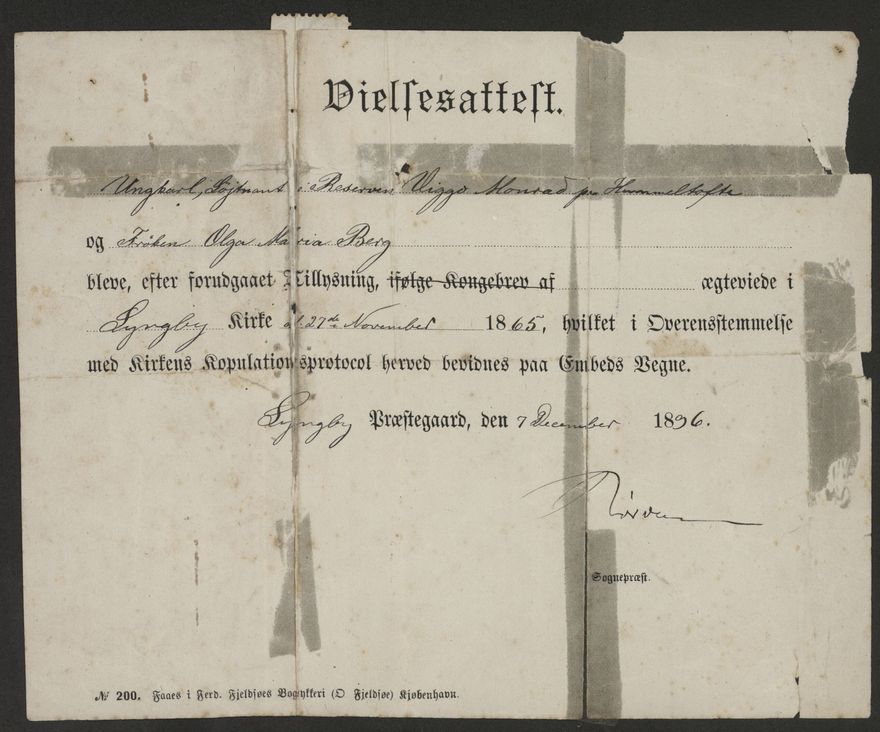 Vielsesattest.
Ungkarl, Løjtnant i Reserven Viggo Monrad paa Hummeltofte
og Frøken Olga Maria Berg
bleve, efter forudgaaet Tillysning, ifølge Kongebrev af ægteviede i
Lyngby Kirke d. 27de November 1865, hvilket i Overensstemmelse
med Kirkens Kopulationsprotocol herved bevidnes paa Embeds Vegne.
Lyngby Præstegaard, den 7 December 1896.
Sognepræst.
№ 200. Faaes i Ferd. Fjeldsøes Bogtykkeri (O Fjeldsøe) Kjøbenhavn.